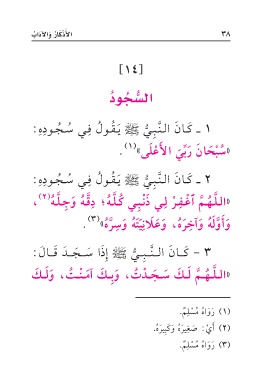 ٣٨ الأَذْكَارُ وَالآدَابُ
[١٤]
السُّجُودُ
١ ـ كَانَ النَّبِيُّ ﷺ يَقُولُ فِي سُجُودِهِ:
«سُبْحَانَ رَبِّيَ الأَعْلَى»(١).
٢ ـ كَانَ النَّبِيُّ ﷺ يَقُولُ فِي سُجُودِهِ:
«اللَّهُمَّ اغْفِرْ لِي ذَنْبِي كُلَّهُ؛ دِقَّهُ وَجِلَّهُ(٢)
وَأَوَّلَهُ وَآخِرَهُ، وَعَلَانِيَتَهُ وَسِرَّهُ»(٣).
٣ - كَـانَ الـنَّـبِـيُّ ﷺ إِذَا سَـجَـدَ قَـالَ:
«اللَّـهُـمَّ لَـكَ سَـجَـدْتُ، وَبِـكَ آمَـنْـتُ، وَلَـكَ
(١) رَوَاهُ مُسْلِمٌ.
(٢) أَيْ: صَغِيرَهُ وَكَبِيرَهُ.
(٣) رَوَاهُ مُسْلِمٌ.